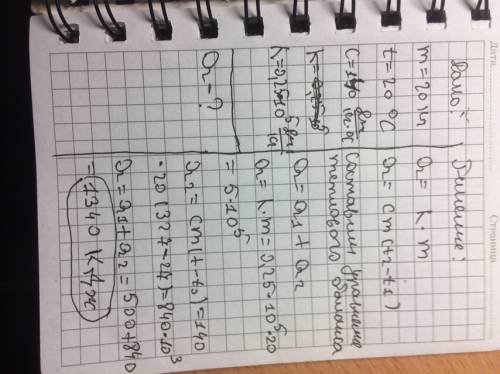 Дано:
m=20 кг
t=20 °C
C=140 Дж/кг·°C
K=0,25·10⁵ Дж/кг
Q-?
Решение:
Q= λ·m
Q= cm(t₂-t₁)
Составим уравнение
теплового баланса
Q=Q₁+Q₂
Q= λ·m=0,25·10⁵·20
= 5·10⁵
Q₂= cm(t-t₀)=140
·20(327-27)=840·10³
Q=Q₁+Q₂=500+840
=1340 кДж
Дата
Страница